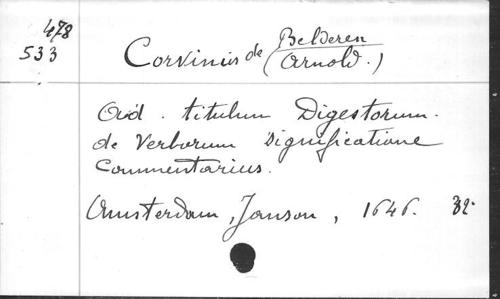 478
533
Corvinus de Belderen
(Arnold.)
Ad. titulum Digestorum.
de Verborum significatione
Commentarius.
Amsterdam, Janson, 1646. 32.